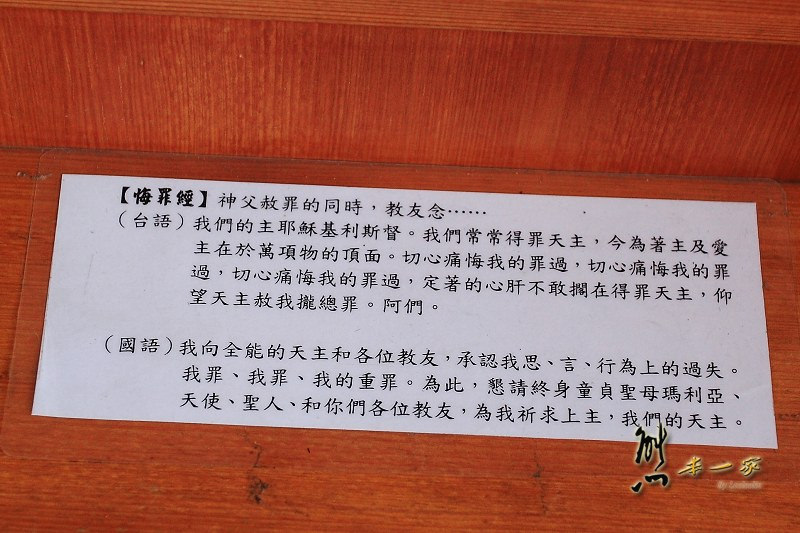 【悔罪經】神父赦罪的同時，教友念……
（台語）我們的主耶穌基利斯督。我們常常得罪天主，今為著主及愛
主在於萬項物的頂面。切心痛悔我的罪過，切心痛悔我的罪
過，切心痛悔我的罪過，定著的心肝不敢擱在得罪天主，仰
望天主赦我攏總罪。阿們。
（國語）我向全能的天主和各位教友，承認我思、言、行為上的過失。
我罪、我罪、我的重罪。為此，懇請終身童貞聖母瑪利亞、
天使、聖人、和你們各位教友，為我祈求上主，我們的天主。
熊本一家